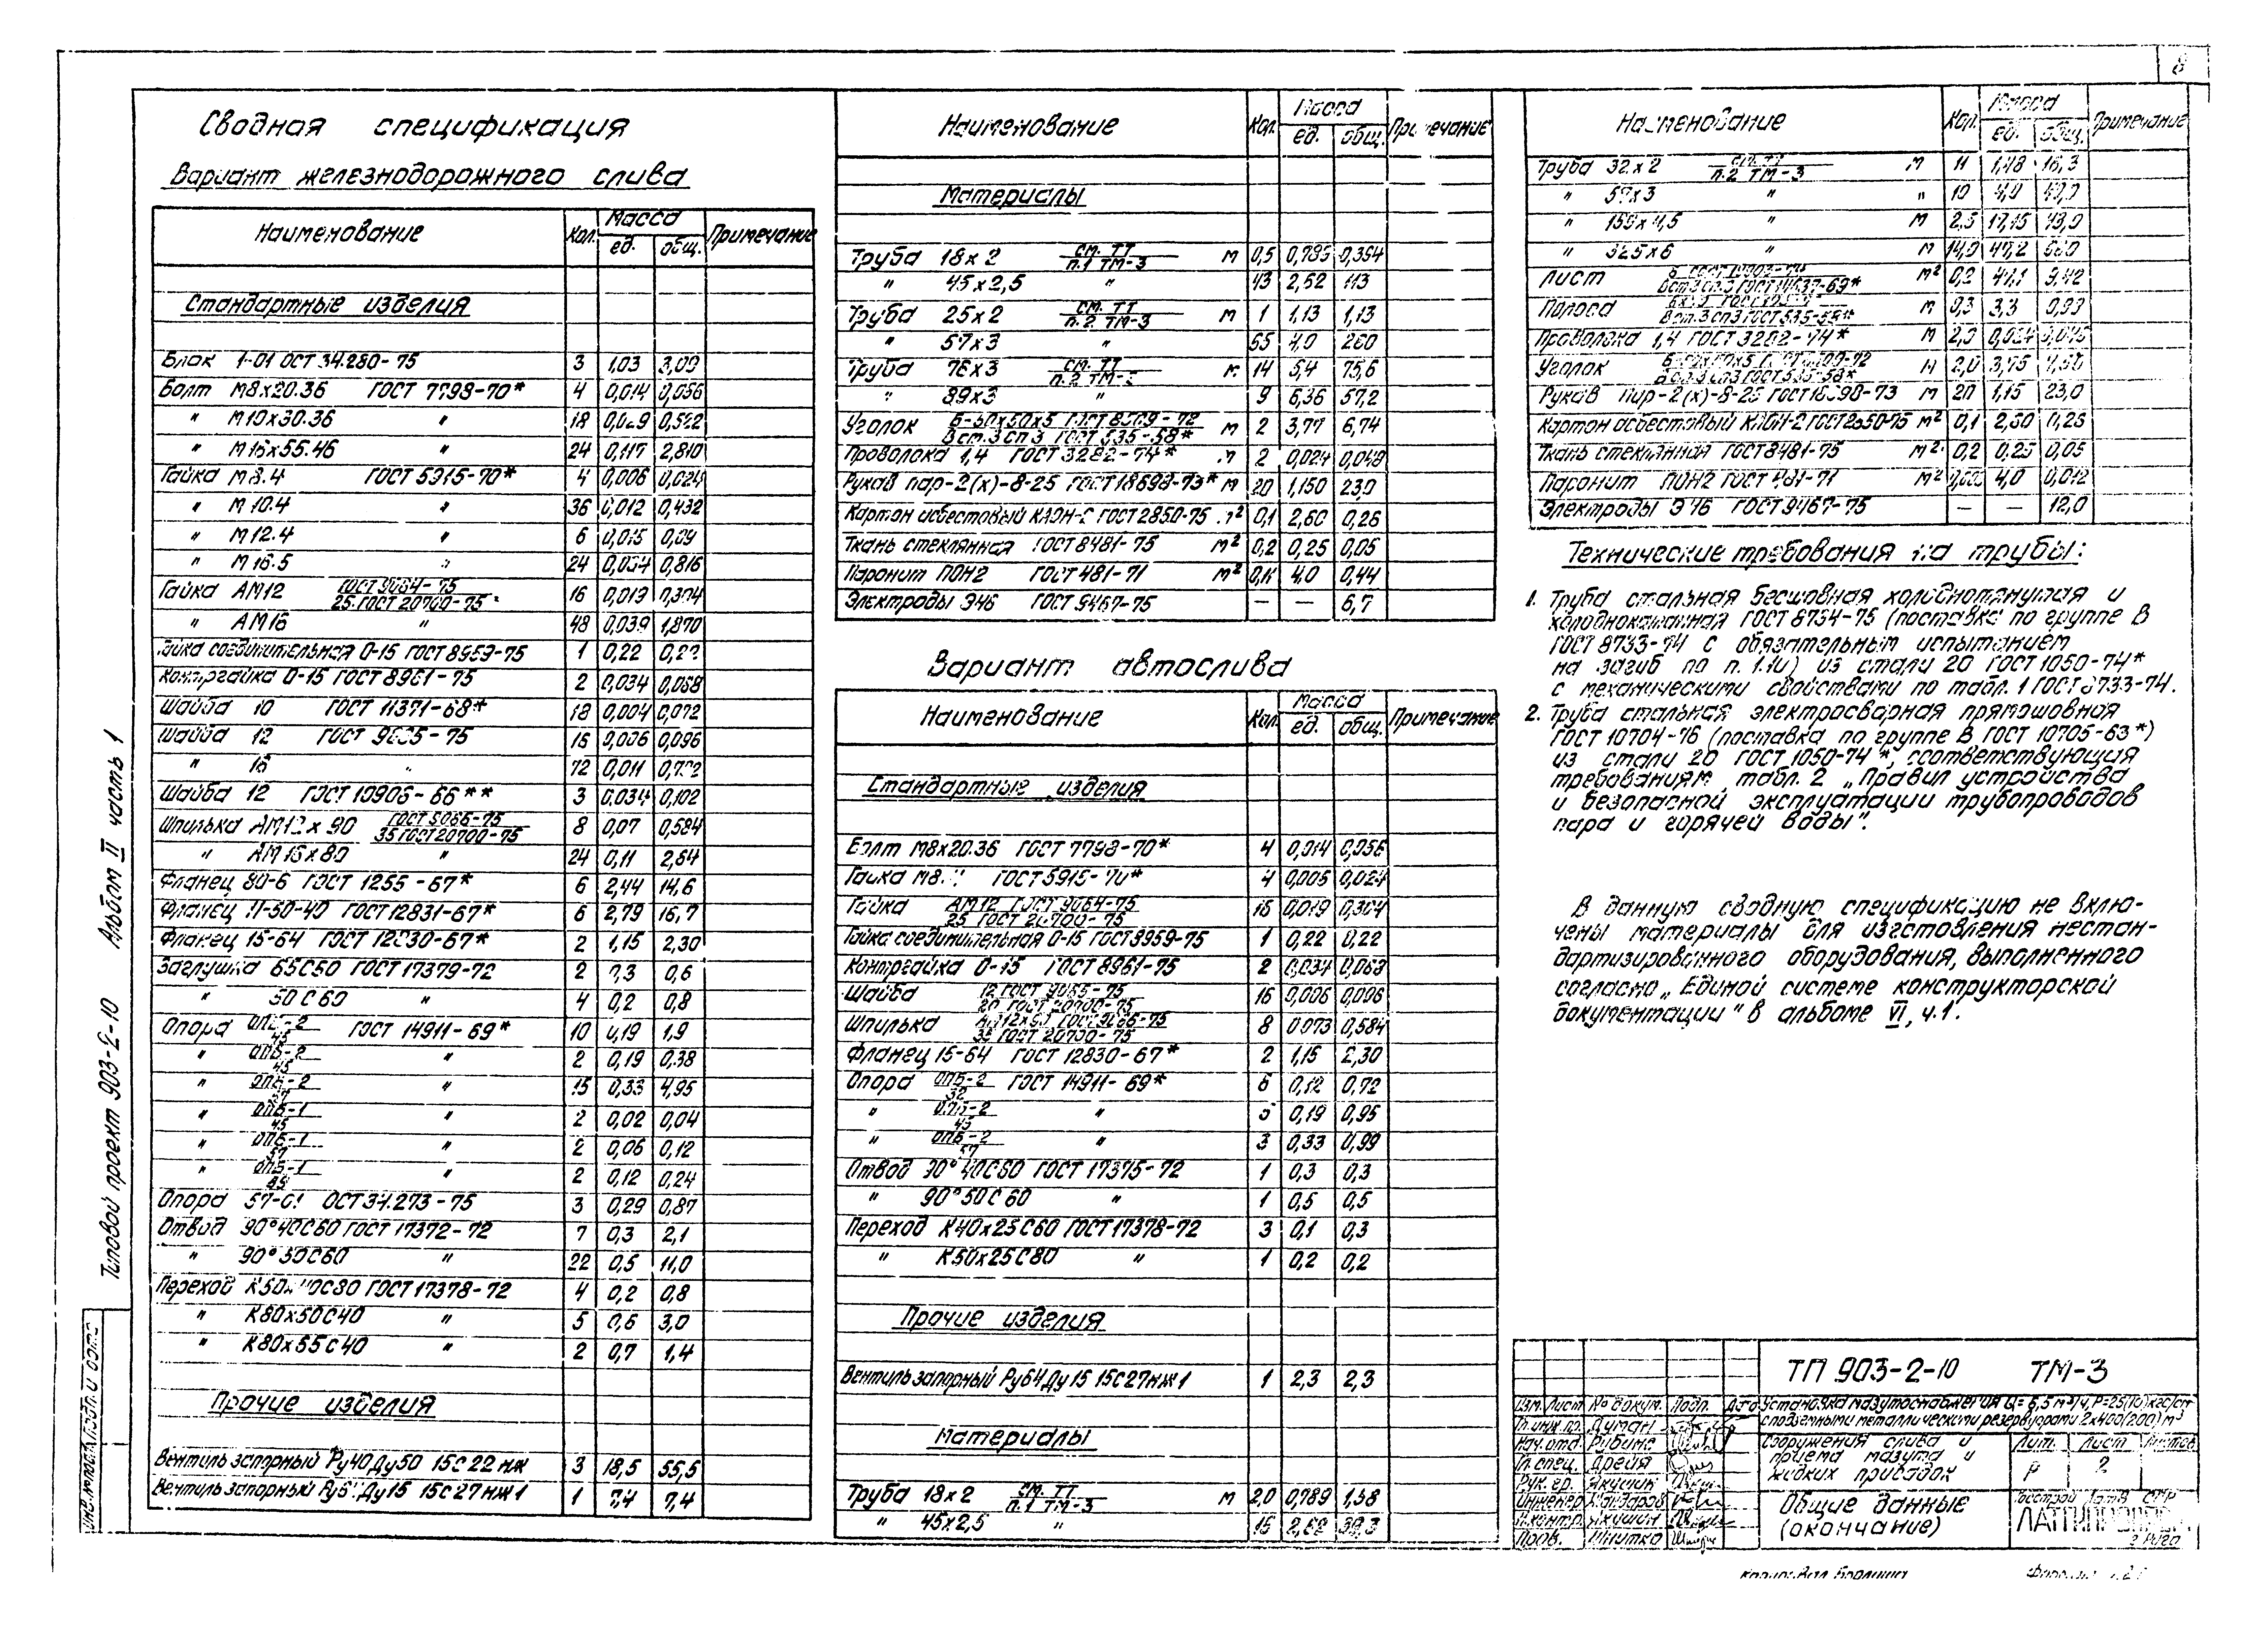 8
Сводная спецификация
Вариант железнодорожного слива
Наименование Кол. Масса ед. общ. Примечание
Стандартные изделия
Блок 1-01 ОСТ 34.280-75 3 1,03 3,09
Болт М8х20.36 ГОСТ 7798-70* 4 0,014 0,056
" М10х30.36 " 18 0,029 0,522
" М16х55.46 " 24 0,117 2,810
Гайка М8.4 ГОСТ 5915-70* 4 0,006 0,024
" М10.4 " 36 0,012 0,432
" М12.4 " 6 0,015 0,09
" М16.5 " 24 0,034 0,816
Гайка АМ12 ГОСТ 9064-75 / 25 ГОСТ 20700-75 16 0,019 0,304
" АМ16 " 48 0,039 1,870
Гайка соединительная О-15 ГОСТ 8959-75 1 0,22 0,22
Контргайка О-15 ГОСТ 8961-75 2 0,034 0,068
Шайба 10 ГОСТ 11371-68* 18 0,004 0,072
Шайба 12 ГОСТ 9065-75 16 0,006 0,096
" 16 " 72 0,011 0,792
Шайба 12 ГОСТ 10906-66** 3 0,034 0,102
Шпилька АМ12х90 ГОСТ 9066-75 / 35 ГОСТ 20700-75 8 0,07 0,584
" АМ16х80 " 24 0,11 2,64
Фланец 80-6 ГОСТ 1255-67* 6 2,44 14,6
Фланец II-50-40 ГОСТ 12831-67* 6 2,79 16,7
Фланец 15-64 ГОСТ 12830-67* 2 1,15 2,30
Заглушка 65С50 ГОСТ 17379-72 2 0,3 0,6
" 50С60 " 4 0,2 0,8
Опора ОПБ-2/45 ГОСТ 14911-69* 10 0,19 1,9
" ОПБ-2/45 " 2 0,19 0,38
" ОПБ-2/57 " 15 0,33 4,95
" ОПБ-1/45 " 2 0,02 0,04
" ОПБ-1/57 " 2 0,06 0,12
" ОПБ-1 " 2 0,12 0,24
Опора 57-01 ОСТ 34.273-75 3 0,29 0,87
Отвод 90°40С60 ГОСТ 17372-72 7 0,3 2,1
" 90°50С60 " 22 0,5 11,0
Переход К50х40С80 ГОСТ 17378-72 4 0,2 0,8
" К80х50С40 " 5 0,6 3,0
" К80х65С40 " 2 0,7 1,4
Прочие изделия
Вентиль запорный Ру40Ду50 15с22нж 3 18,5 55,5
Вентиль запорный Ру64 Ду15 15с27нж1 1 7,4 7,4
Наименование Кол. Масса ед. общ. Примечание
Материалы
Труба 18х2 см. ТТ / п.1 ТМ-3 м 0,5 0,789 0,394
" 45х2,5 " 43 2,62 113
Труба 25х2 см. ТТ / п.2 ТМ-3 м 1 1,13 1,13
" 57х3 " 65 4,0 260
Труба 76х3 см. ТТ / п.2 ТМ-3 м 14 5,4 75,6
" 89х3 " 9 6,36 57,2
Уголок Б-50х50х5 ГОСТ 8509-72 / Вст.3сп3 ГОСТ 535-58* м 2 3,77 6,74
Проволока 1,4 ГОСТ 3282-74* м 2 0,024 0,048
Рукав пар-2(х)-8-25 ГОСТ 18698-73* м 20 1,150 23,0
Картон асбестовый КАОН-2 ГОСТ 2850-75 м² 0,1 2,60 0,26
Ткань стеклянная ГОСТ 8481-75 м² 0,2 0,25 0,05
Паронит ПОН2 ГОСТ 481-71 м² 0,11 4,0 0,44
Электроды Э46 ГОСТ 9467-75 — — 6,7
Вариант автослива
Наименование Кол. Масса ед. общ. Примечание
Стандартные изделия
Болт М8х20.36 ГОСТ 7798-70* 4 0,014 0,056
Гайка М8.4 ГОСТ 5915-70* 4 0,006 0,024
Гайка АМ12 ГОСТ 9064-75 / 25 ГОСТ 20700-75 16 0,019 0,304
Гайка соединительная О-15 ГОСТ 8959-75 1 0,22 0,22
Контргайка О-15 ГОСТ 8961-75 2 0,034 0,068
Шайба 12 ГОСТ 9065-75 / 20 ГОСТ 20700-75 16 0,006 0,096
Шпилька АМ12х90 ГОСТ 9066-75 / 35 ГОСТ 20700-75 8 0,073 0,584
Фланец 15-64 ГОСТ 12830-67* 2 1,15 2,30
Опора ОПБ-2/32 ГОСТ 14911-69* 6 0,12 0,72
" ОПБ-2/45 " 5 0,19 0,95
" ОПБ-2/57 " 3 0,33 0,99
Отвод 90°40С60 ГОСТ 17375-72 1 0,3 0,3
" 90°50С60 " 1 0,5 0,5
Переход К40х25С60 ГОСТ 17378-72 3 0,1 0,3
" К50х25С80 " 1 0,2 0,2
Прочие изделия
Вентиль запорный Ру64Ду15 15с27нж1 1 2,3 2,3
Материалы
Труба 18х2 см. ТТ / п.1 ТМ-3 м 2,0 0,789 1,58
" 45х2,5 " 15 2,62 39,3
Наименование Кол. Масса ед. общ. Примечание
Труба 32х2 см. ТТ / п.2 ТМ-3 м 11 1,48 16,3
" 57х3 " " 10 4,0 40,0
" 159х4,5 " м 2,5 17,15 43,0
" 325х6 " м 14,0 47,2
Лист ГОСТ 19903-74 / Вст.3сп3 ГОСТ 14637-69* м² 0,2 47,1 9,42
Полоса / Вст.3сп3 ГОСТ 535-58* м 0,3 3,3 0,99
Проволока 1,4 ГОСТ 3282-74* м 2,0 0,024 0,048
Уголок Б-50х50х5 ГОСТ 8509-72 / Вст.3сп3 ГОСТ 535-58* м 2,0 3,75
Рукав Пар-2(х)-8-25 ГОСТ 18698-73 м 20 1,15 23,0
Картон асбестовый КАОН-2 ГОСТ 2850-75 м² 0,1 2,60 0,26
Ткань стеклянная ГОСТ 8481-75 м² 0,2 0,25 0,05
Паронит ПОН2 ГОСТ 481-71 м² 4,0 0,012
Электроды Э46 ГОСТ 9467-75 — — 12,0
Технические требования на трубы:
1. Труба стальная бесшовная холоднотянутая и
холоднокатанная ГОСТ 8734-75 (поставка по группе В
ГОСТ 8733-74 с обязательным испытанием
на загиб по п. 1.10) из стали 20 ГОСТ 1050-74*
с механическими свойствами по табл. 1 ГОСТ 8733-74.
2. Труба стальная электросварная прямошовная
ГОСТ 10704-76 (поставка по группе В ГОСТ 10705-63*)
из стали 20 ГОСТ 1050-74*, соответствующия
требованиям табл. 2 „Правил устройства
и безопасной эксплуатации трубопроводов
пара и горячей воды".
В данную сводную спецификацию не вклю-
чены материалы для изготовления нестан-
дартизированного оборудования, выполненного
согласно „Единой системе конструкторской
документации" в альбоме VI, ч.1.
Типовой проект 903-2-10 Альбом II часть 1
ТП 903-2-10 ТМ-3
Изм. Лист № докум. Подп. Дата
Установка мазутоснабжения Q=6,5м³/ч, Р=25(10)кгс/см
с подземными металлическими резервуарами 2х400(200)м³
Гл. инж. пр. Думан
Нач. отд. Рубинс
Гл. спец. Дрейя
Рук. гр. Якушин
Инженер
Н.контр. Якушин
Пров. Шнитко
Сооружения слива и
приема мазута и
жидких присадок
Лит. Лист Листов
Р 2
Общие данные
(окончание)
ЛАТГИПРОПРОМ
г. Рига
Копировал
Формат